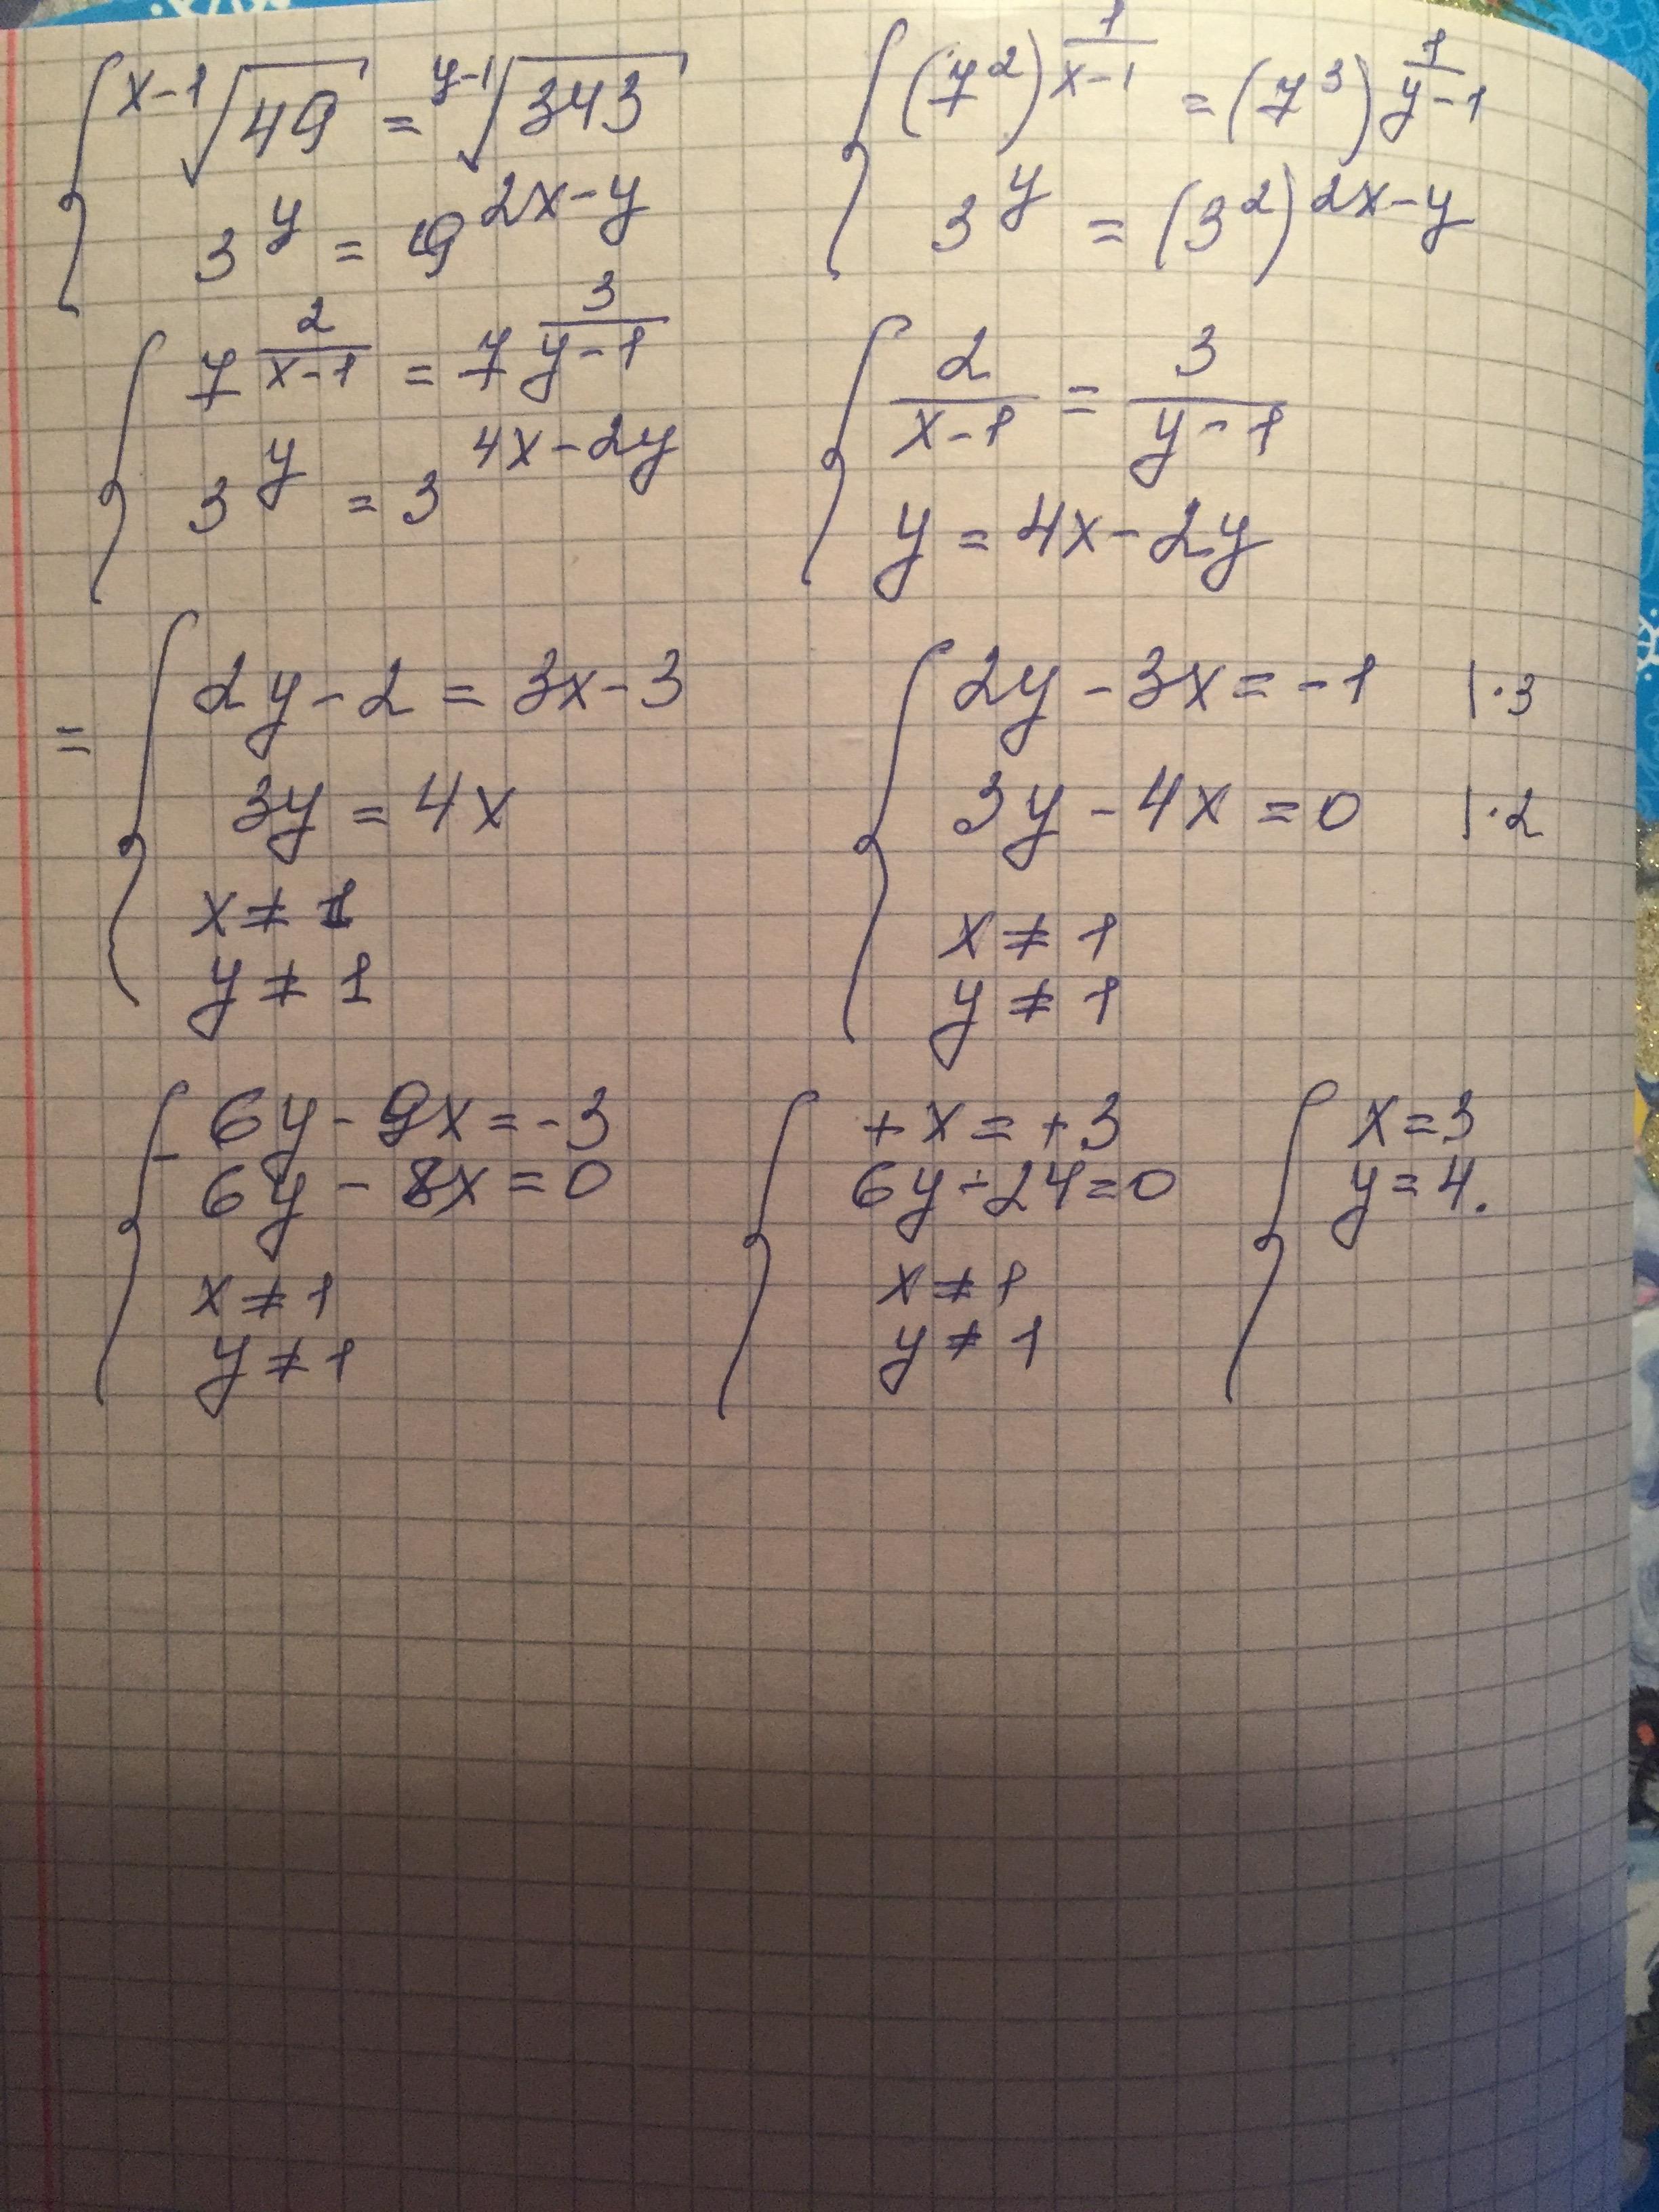 { ˣ⁻¹√49 = ʸ⁻¹√343
3^y = 9^(2x-y)
{ (7²)^(1/(x-1)) = (7³)^(1/(y-1))
3^y = (3²)^(2x-y)
{ 7^(2/(x-1)) = 7^(3/(y-1))
3^y = 3^(4x-2y)
{ 2/(x-1) = 3/(y-1)
y = 4x-2y
= { 2y-2 = 3x-3
3y = 4x
x ≠ 1
y ≠ 1
{ 2y - 3x = -1 |·3
3y - 4x = 0 |·2
x ≠ 1
y ≠ 1
{ - 6y - 9x = -3
6y - 8x = 0
x ≠ 1
y ≠ 1
{ +x = +3
6y - 24 = 0
x ≠ 1
y ≠ 1
{ x = 3
y = 4.